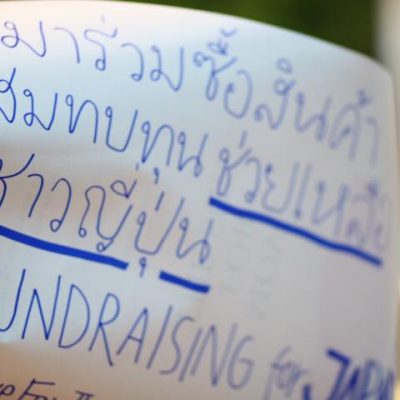 มาร่วมซื้อสินค้า
สมทบทุนช่วยเหลือ
ชาวญี่ปุ่น
UNDRAISING for JAPA